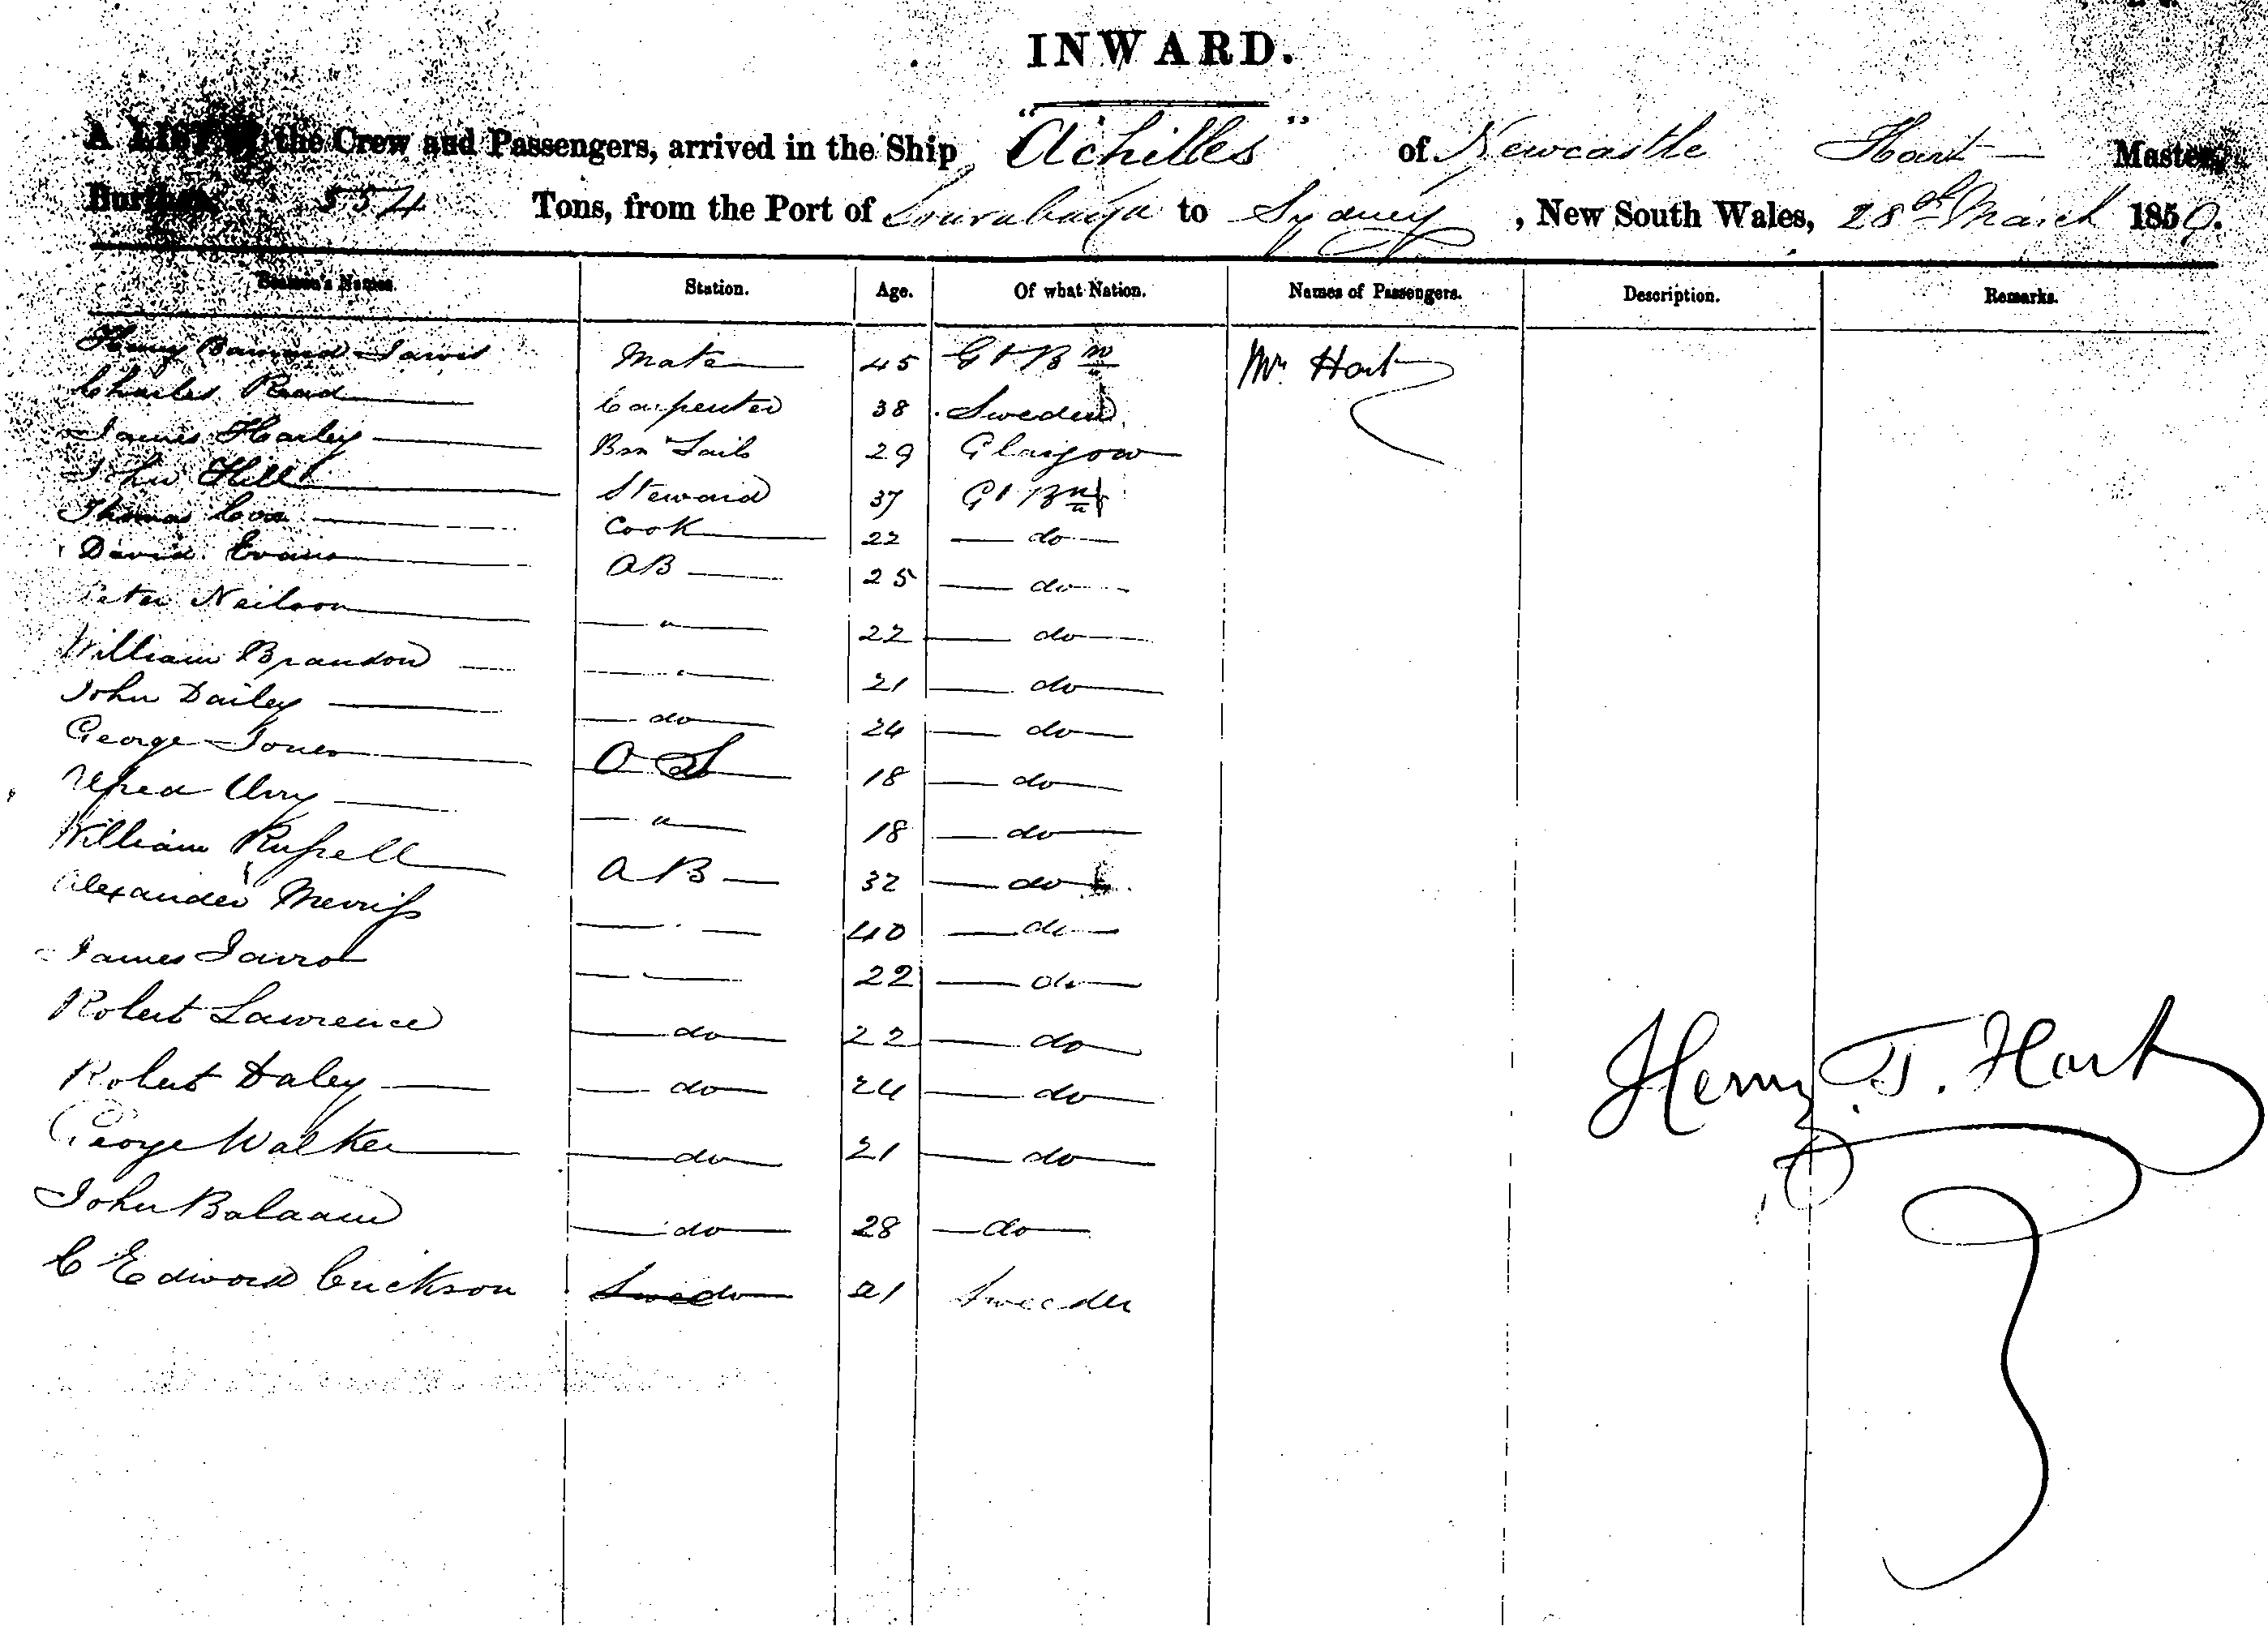 INWARD.
A LIST of the Crew and Passengers, arrived in the Ship "Achilles" of Newcastle Hart Master,
Burthen 554 Tons, from the Port of Sourabaya to Sydney, New South Wales, 28th March 1859.
Seamen's Names. Station. Age. Of what Nation. Names of Passengers. Description. Remarks.
Henry Jarvis Mate 45 Gt Bn Mr. Hart
Charles Read Carpenter 38 Sweden
James Harley Bsn Sails 29 Glasgow
John Hill Steward 37 Gt Bn
Thomas Cook 22 do
David Evans AB 25 do
Peter Neilson " 22 do
William Brandon " 21 do
John Dailey do 24 do
George Jones O S 18 do
Alfred " 18 do
William Russell A B 32 do
Alexander 40 do
James 22 do
Robert Lawrence do 22 do
Robert Daley do 24 do
George Walker do 21 do
John Balaam do 28 do
C Edward Erickson do 21 Sweeden
Henry T. Hart